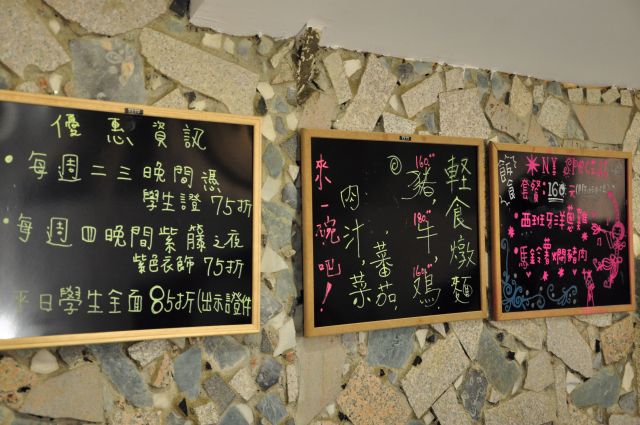 優惠資訊
•每週二三晚間憑
學生證75折
•每週四晚間紫籐之夜
紫色衣飾75折
平日學生全面85折(出示證件
輕食燉麵
160 豬,180 牛,160 鷄,
蕃茄,
肉汁菜
來一碗吧!
套餐:160元
•西班牙洋蔥雞
•馬鈴薯燜豬肉